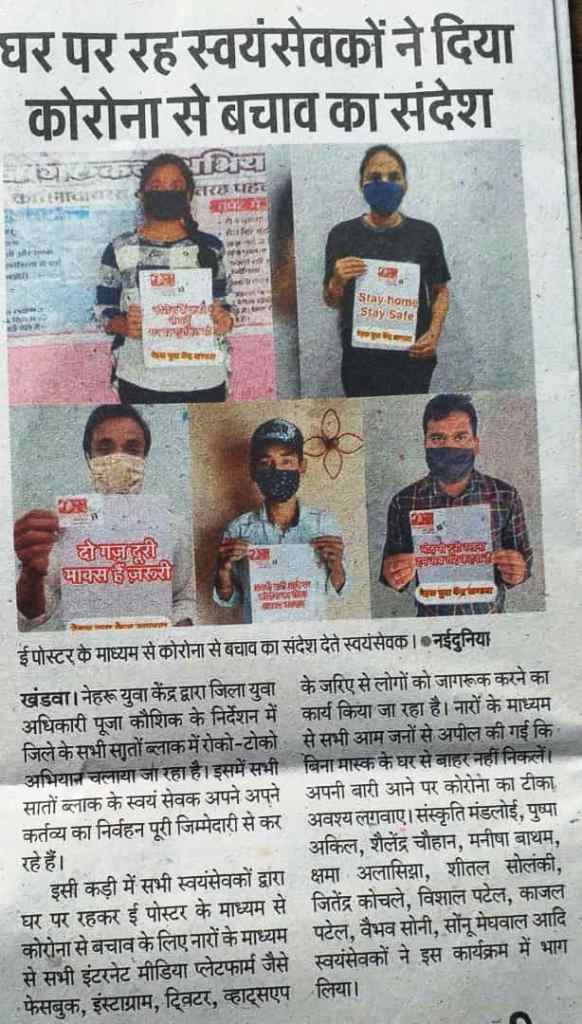 घर पर रह स्वयंसेवकों ने दिया
कोरोना से बचाव का संदेश
तरह पहच
Stay home
Stay Safe
नेहरू युवा केंद्र खण्डवा
दो गज दूरी
मास्क हैं ज़रूरी
नेहरू युवा केंद्र खण्डवा
ई पोस्टर के माध्यम से कोरोना से बचाव का संदेश देते स्वयंसेवक। ● नईदुनिया
खंडवा। नेहरू युवा केंद्र द्वारा जिला युवा
अधिकारी पूजा कौशिक के निर्देशन में
जिले के सभी सातों ब्लाक में रोको-टोको
अभियान चलाया जा रहा है। इसमें सभी
सातों ब्लाक के स्वयं सेवक अपने अपने
कर्तव्य का निर्वहन पूरी जिम्मेदारी से कर
रहे हैं।
इसी कड़ी में सभी स्वयंसेवकों द्वारा
घर पर रहकर ई पोस्टर के माध्यम से
कोरोना से बचाव के लिए नारों के माध्यम
से सभी इंटरनेट मीडिया प्लेटफार्म जैसे
फेसबुक, इंस्टाग्राम, ट्विटर, व्हाट्सएप
के जरिए से लोगों को जागरूक करने का
कार्य किया जा रहा है। नारों के माध्यम
से सभी आम जनों से अपील की गई कि
बिना मास्क के घर से बाहर नहीं निकलें।
अपनी बारी आने पर कोरोना का टीका
अवश्य लगवाए। संस्कृति मंडलोई, पुष्पा
अकिल, शैलेंद्र चौहान, मनीषा बाथम,
क्षमा अलासिया, शीतल सोलंकी,
जितेंद्र कोचले, विशाल पटेल, काजल
पटेल, वैभव सोनी, सोनू मेघवाल आदि
स्वयंसेवकों ने इस कार्यक्रम में भाग
लिया।